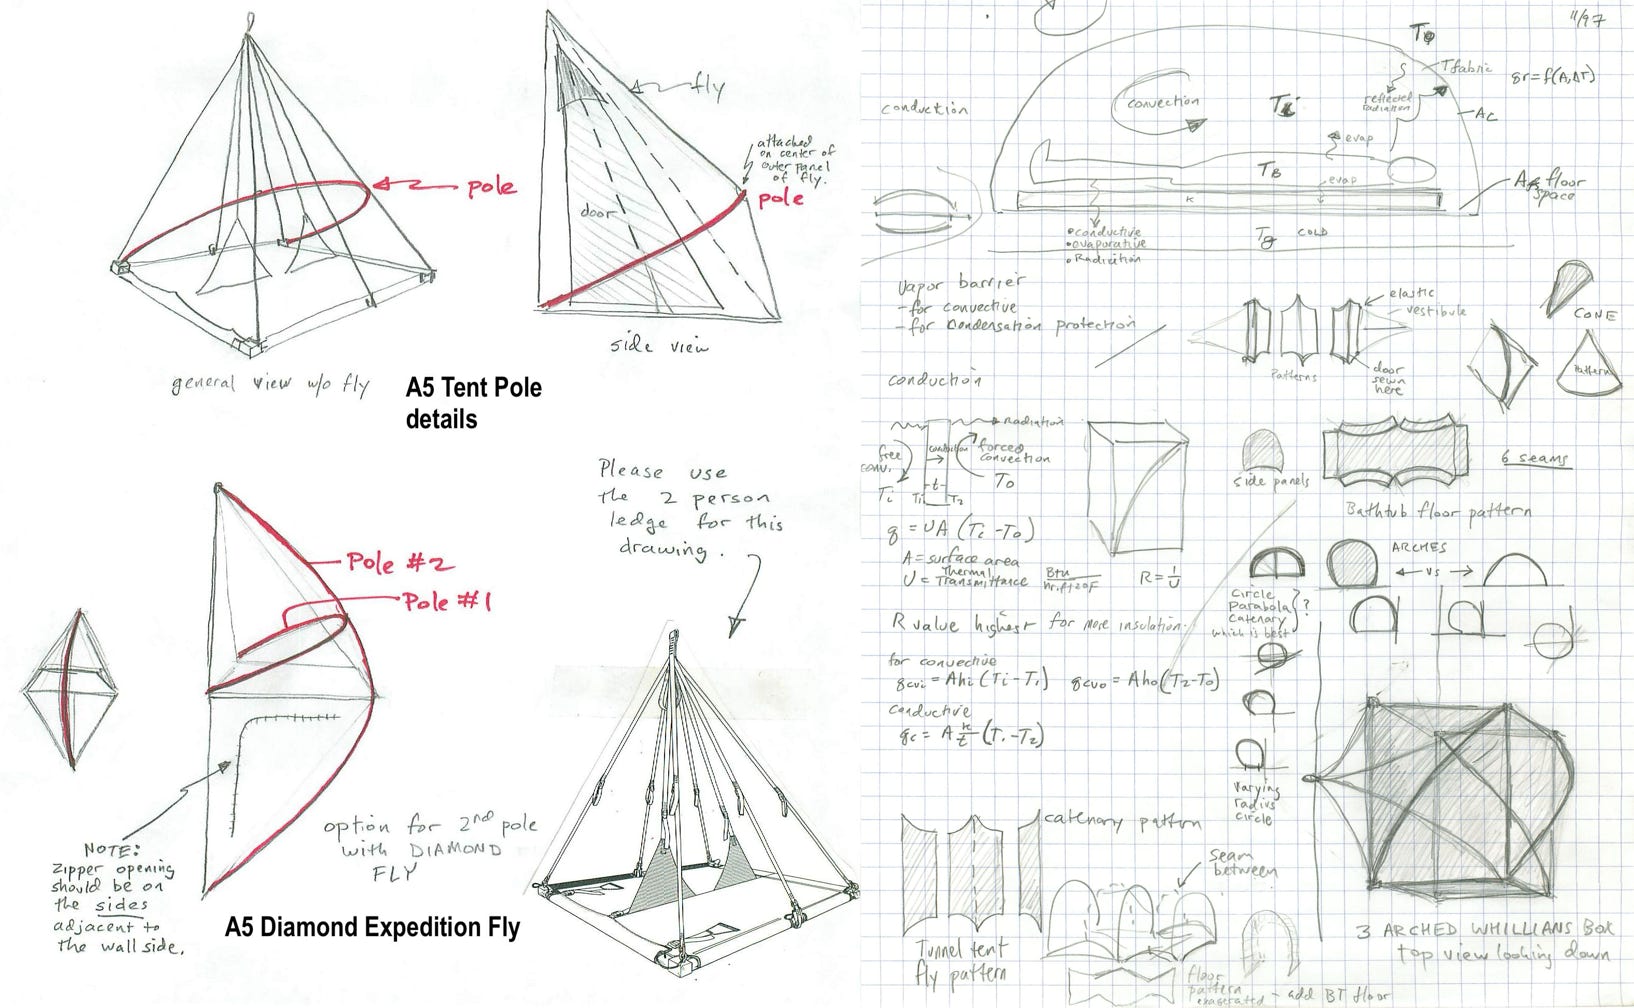 pole
general view w/o fly
fly
attached
on center of
outer panel
of fly.
pole
door
side view
A5 Tent Pole
details
Pole #2
Pole #1
Please use
the 2 person
ledge for this
drawing.
NOTE:
Zipper opening
should be on
the sides
adjacent to
the wall side.
option for 2nd pole
with DIAMOND
FLY
A5 Diamond Expedition Fly
11/97
conduction
convection
reflected
radiation
Tfabric
gr = f(A, ΔT)
Ac
evap
TB
evap
K
floor
space
•conductive
•evaporative
•Radiation
Tg COLD
Vapor barrier
- for convective
- for condensation protection
elastic
vestibule
Patterns
door
sewn
here
CONE
Pattern
conduction
radiation
free
conv.
conduction
forced
convection
t
Ti
T1
T2
To
side panels
6 seams
Bathtub floor pattern
q = UA (Ti - To)
A = surface area
U = Thermal Transmittance Btu/hr.ft2°F
R = 1/U
R value highest for more insulation.
for convective
qcvi = Ahi (Ti - T1) qcvo = Aho (T2 - To)
conductive
qc = A K/t (T1 - T2)
ARCHES
vs
Circle
Parabola
Catenary
?
which is best
varying
radius
circle
catenary pattern
Tunnel tent
fly pattern
seam
between
floor
pattern
exaggerated - add BT floor
3 ARCHED WHILLIANS BOX
top view looking down